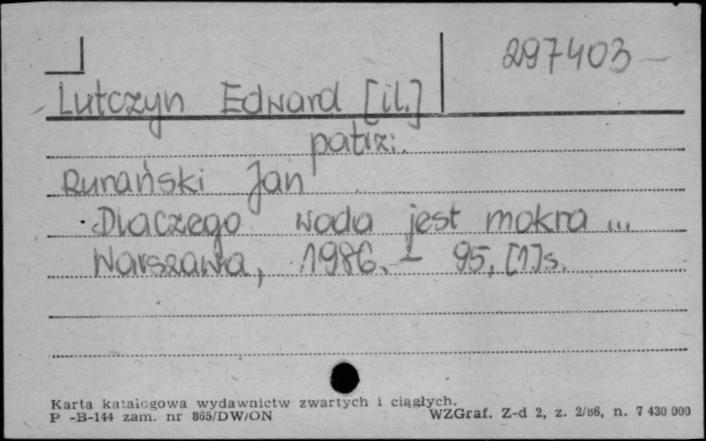 297403
Lutczyn Edward [il.]
patrz:
Rurański Jan
Dlaczego woda jest mokra ...
Warszawa, 1986. - 95, [1]s.
Karta katalogowa wydawnictw zwartych i ciągłych.
P -B-144 zam. nr 865/DW/ON WZGraf. Z-d 2, z. 2/86, n. 7 430 000